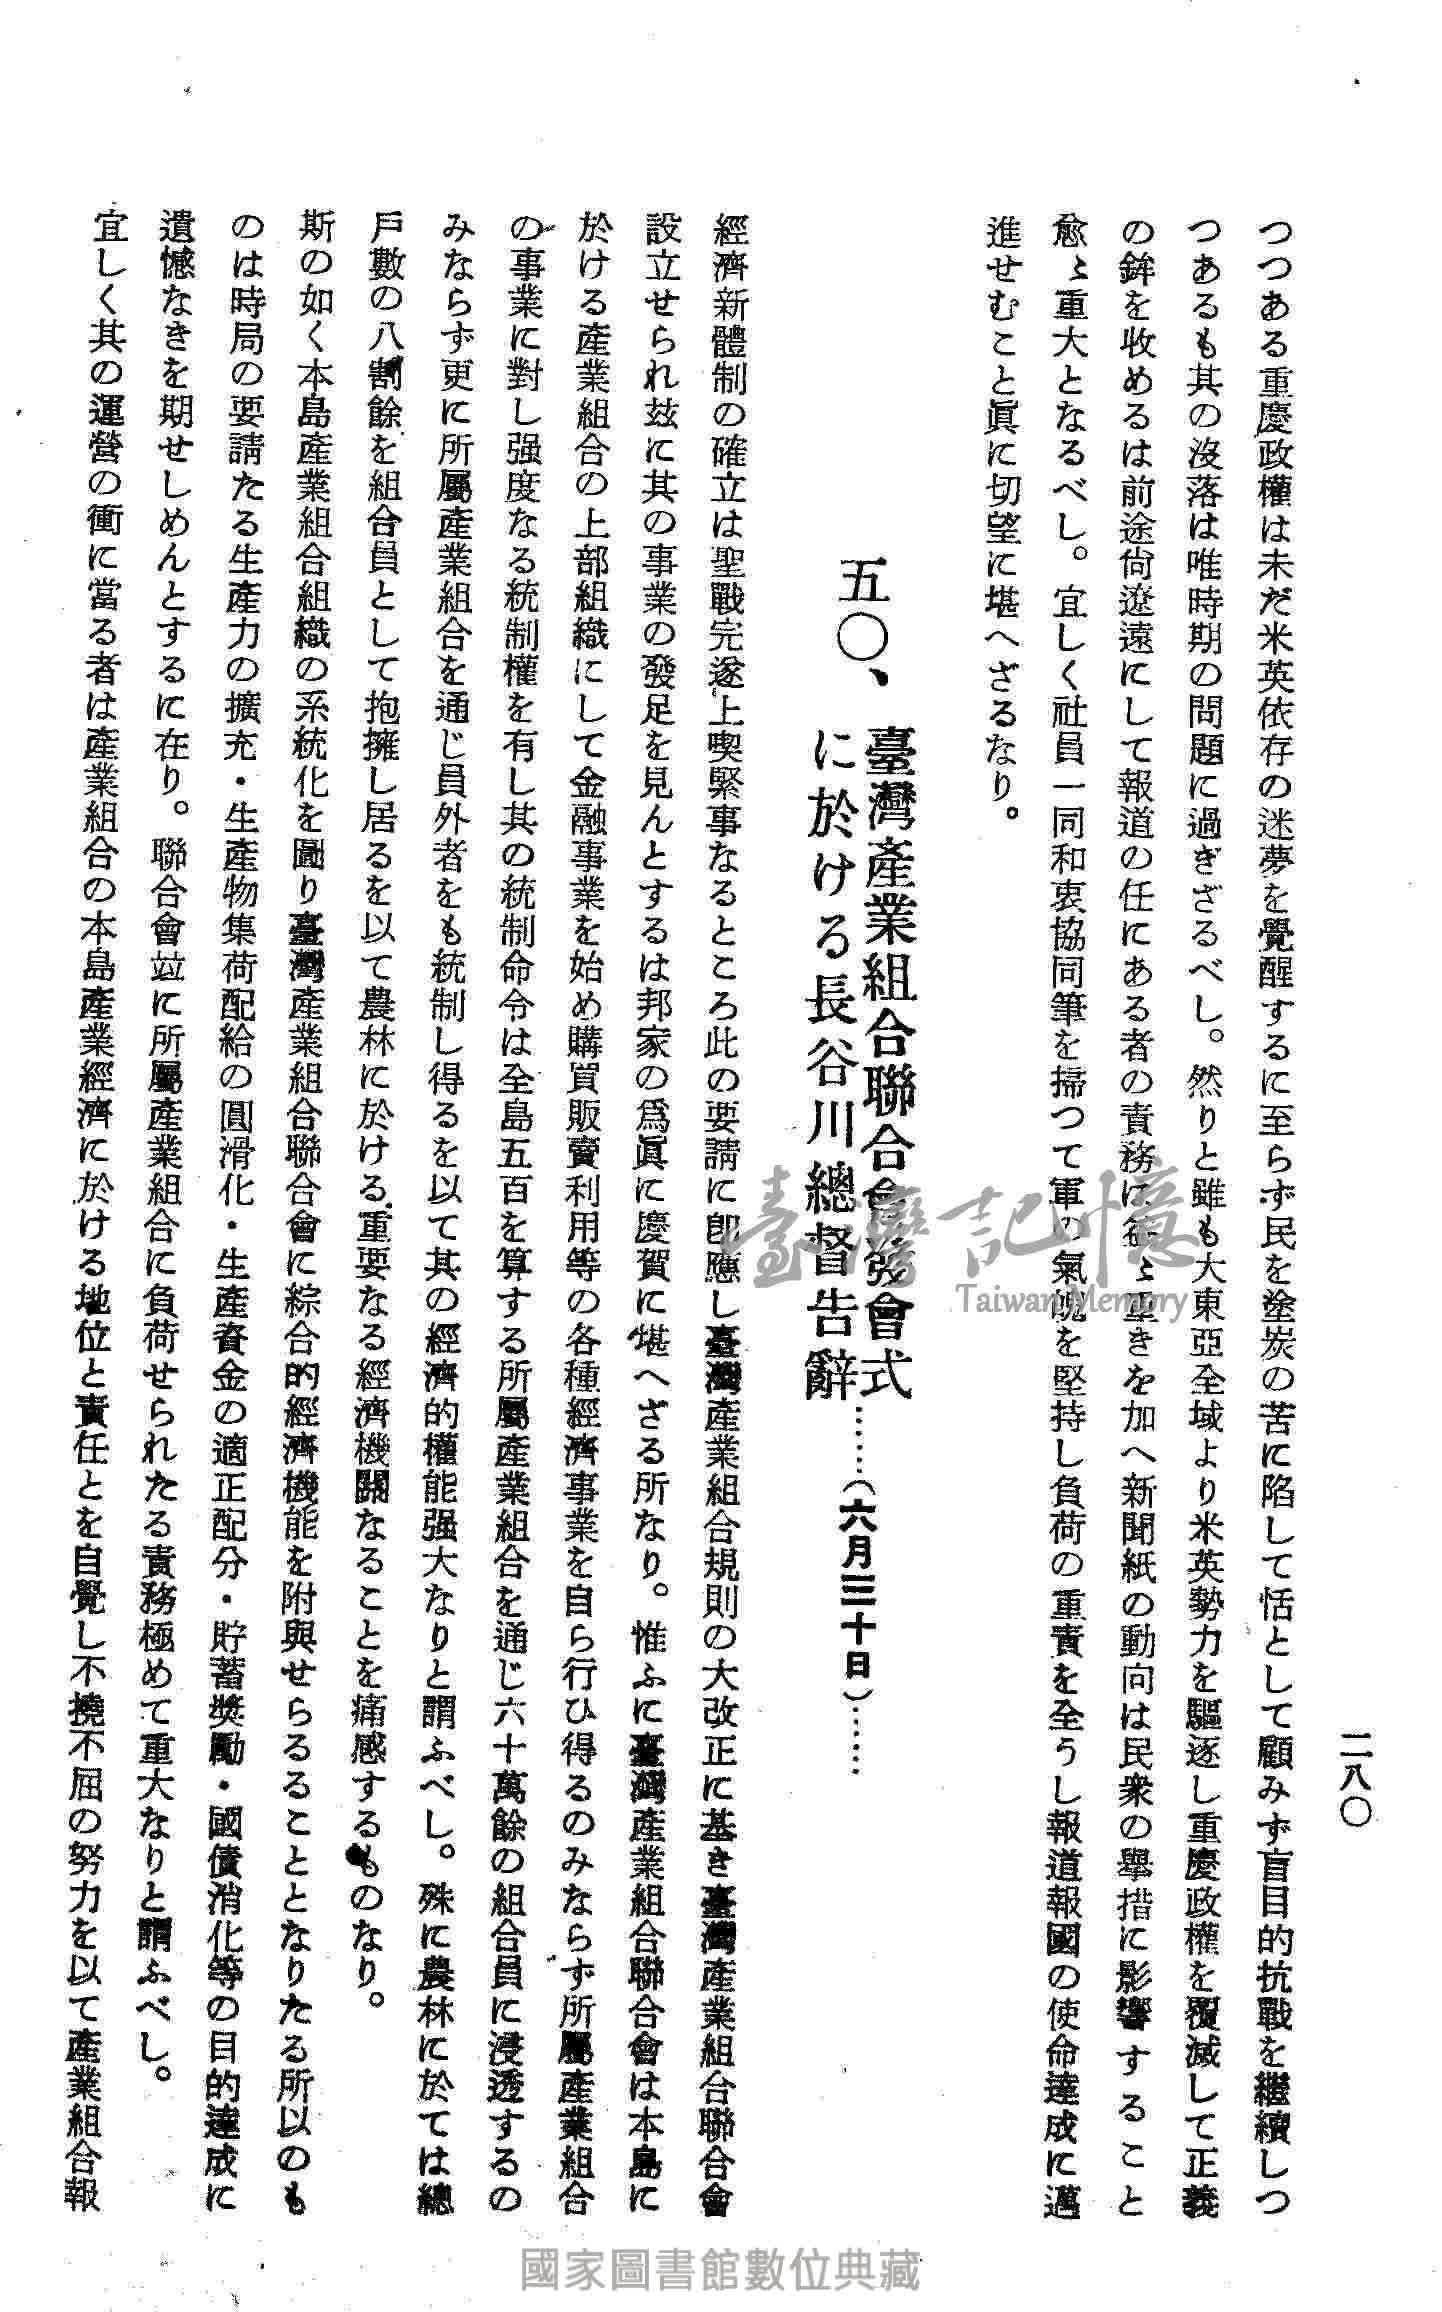 二八〇
つつある重慶政權は未だ米英依存の迷夢を覺醒するに至らず民を塗炭の苦に陷して恬として顧みず盲目的抗戰を繼續しつ
つあるも其の沒落は唯時期の問題に過ぎざるべし。然りと雖も大東亞全域より米英勢力を驅逐し重慶政權を覆滅して正義
の鉾を收めるは前途尙遼遠にして報道の任にある者の責務に重きを加へ新聞紙の動向は民衆の擧措に影響すること
愈〻重大となるべし。宜しく社員一同和衷協同筆を揮つて軍の氣魄を堅持し負荷の重責を全うし報道報國の使命達成に邁
進せむこと眞に切望に堪へざるなり。
五〇、臺灣產業組合聯合會發會式
に於ける長谷川總督告辭……（六月三十日）……
經濟新體制の確立は聖戰完遂上喫緊事なるところ此の要請に卽應し臺灣產業組合規則の大改正に基き臺灣產業組合聯合會
設立せられ玆に其の事業の發足を見んとするは邦家の爲眞に慶賀に堪へざる所なり。惟ふに臺灣產業組合聯合會は本島に
於ける產業組合の上部組織にして金融事業を始め購買販賣利用等の各種經濟事業を自ら行ひ得るのみならず所屬產業組合
の事業に對し强度なる統制權を有し其の統制命令は全島五百を算する所屬產業組合を通じ六十萬餘の組合員に浸透するの
みならず更に所屬產業組合を通じ員外者をも統制し得るを以て其の經濟的權能强大なりと謂ふべし。殊に農林に於ては總
戶數の八割餘を組合員として抱擁し居るを以て農林に於ける重要なる經濟機關なることを痛感するものなり。
斯の如く本島產業組合組織の系統化を圖り臺灣產業組合聯合會に綜合的經濟機能を附與せらるることとなりたる所以のも
のは時局の要請たる生產力の擴充・生產物集荷配給の圓滑化・生產資金の適正配分・貯蓄奬勵・國債消化等の目的達成に
遺憾なきを期せしめんとするに在り。聯合會竝に所屬產業組合に負荷せられたる責務極めて重大なりと謂ふべし。
宜しく其の運營の衝に當る者は產業組合の本島產業經濟に於ける地位と責任とを自覺し不撓不屈の努力を以て產業組合報
臺灣記憶
Taiwan Memory
國家圖書館數位典藏